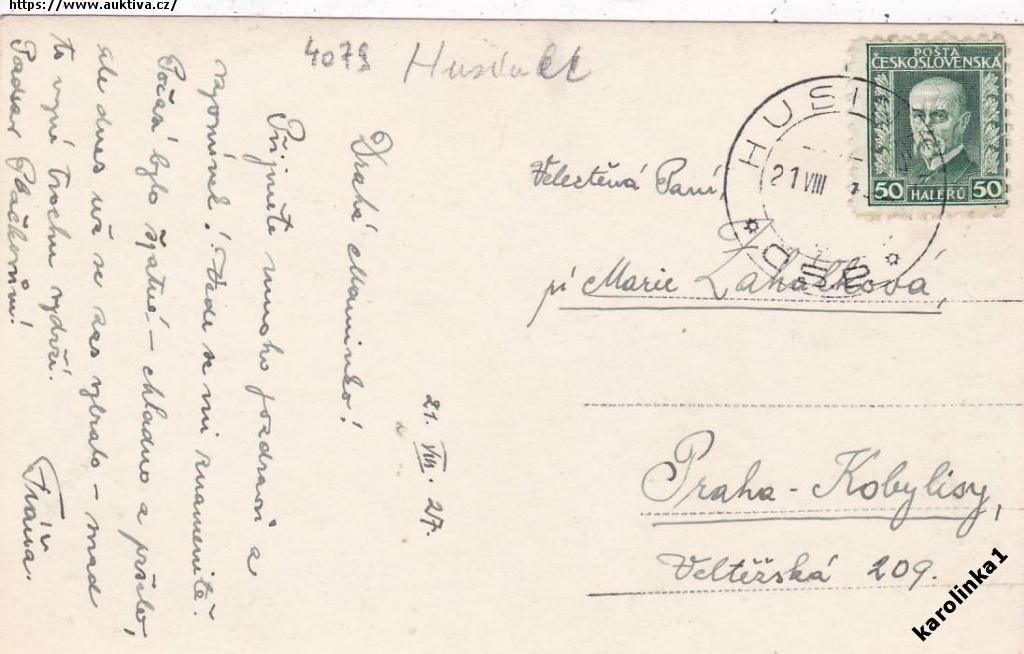 https://www.auktiva.cz/
4079
POŠTA
ČESKOSLOVENSKÁ
50 HALÉŘŮ 50
HUSI
21 VIII
Drahá Maminko!
Přijměte mnoho pozdravů a
vzpomínek! Vede se mi znamenitě.
Počasí bylo špatné – chladno a pršelo,
ale dnes už se zas vybralo – snad
to nyní trochu vydrží.
Pozdrav
Fráňa.
21. VIII. 27.
Velectěná Paní,
pí Marie Zahálková,
Praha - Kobylisy,
Veltěžská 209.
karolinka1